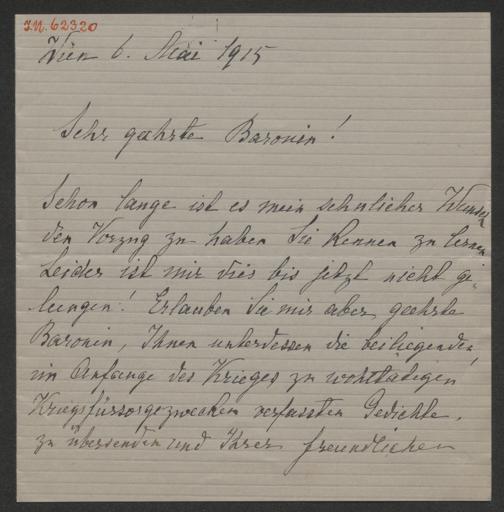 I.N. 62320
Wien 6. Mai 1915
Sehr geehrte Baronin!
Schon lange ist es mein sehnlicher Wunsch
den Vorzug zu haben Sie kennen zu lernen
Leider ist mir dies bis jetzt nicht ge-
lungen! Erlauben Sie mir aber, geehrte
Baronin, Ihnen unterdessen die beiliegenden,
im Anfange des Krieges zu wohltätigen
Kriegsfürsorgezwecken verfassten Gedichte,
zu übersenden und Ihrer freundlichen